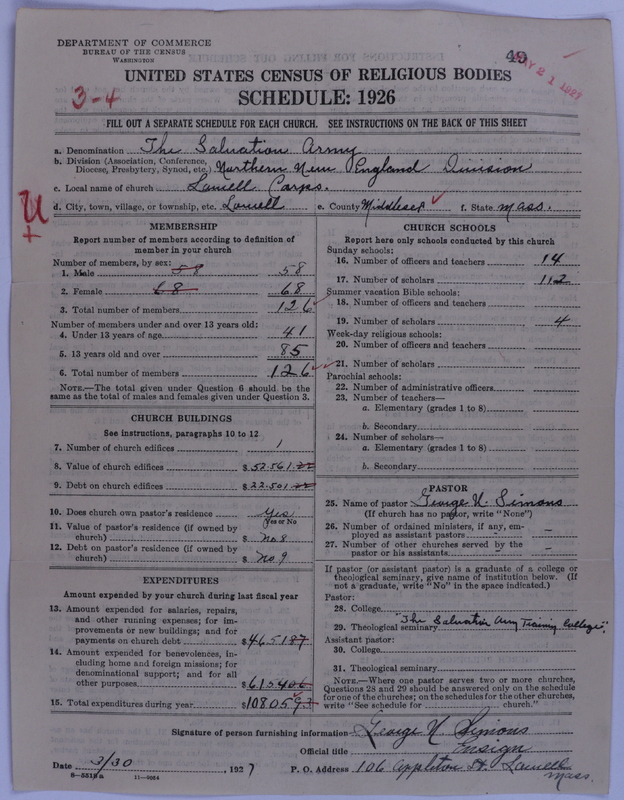 DEPARTMENT OF COMMERCE
BUREAU OF THE CENSUS
WASHINGTON
49
MAY 21 1927
UNITED STATES CENSUS OF RELIGIOUS BODIES
3-4
SCHEDULE: 1926
FILL OUT A SEPARATE SCHEDULE FOR EACH CHURCH. SEE INSTRUCTIONS ON THE BACK OF THIS SHEET
a. Denomination The Salvation Army
b. Division (Association, Conference, Diocese, Presbytery, Synod, etc.) Northern New England Division
c. Local name of church Lowell Corps.
d. City, town, village, or township, etc. Lowell e. County Middlesex f. State Mass.
U
MEMBERSHIP
Report number of members according to definition of
member in your church
Number of members, by sex:
1. Male 58 58
2. Female 68 68
3. Total number of members 126
Number of members under and over 13 years old:
4. Under 13 years of age 41
5. 13 years old and over 85
6. Total number of members 126
NOTE.—The total given under Question 6 should be the
same as the total of males and females given under Question 3.
CHURCH BUILDINGS
See instructions, paragraphs 10 to 12
7. Number of church edifices 1
8. Value of church edifices $52.561.22
9. Debt on church edifices $22.501.22
10. Does church own pastor's residence? Yes
Yes or No
11. Value of pastor's residence (if owned by
church) $ No. 8
12. Debt on pastor's residence (if owned by
church) $ No. 9
EXPENDITURES
Amount expended by your church during last fiscal year
13. Amount expended for salaries, repairs,
and other running expenses; for im-
provements or new buildings; and for
payments on church debt $4651 87
14. Amount expended for benevolences, in-
cluding home and foreign missions; for
denominational support; and for all
other purposes $6154 06
15. Total expenditures during year $10805 93
CHURCH SCHOOLS
Report here only schools conducted by this church
Sunday schools:
16. Number of officers and teachers 14
17. Number of scholars 112
Summer vacation Bible schools:
18. Number of officers and teachers
19. Number of scholars 4
Week-day religious schools:
20. Number of officers and teachers
21. Number of scholars
Parochial schools:
22. Number of administrative officers
23. Number of teachers—
a. Elementary (grades 1 to 8)
b. Secondary
24. Number of scholars—
a. Elementary (grades 1 to 8)
b. Secondary
PASTOR
25. Name of pastor George N. Simons
(If church has no pastor, write "None")
26. Number of ordained ministers, if any, em-
ployed as assistant pastors –
27. Number of other churches served by the
pastor or his assistants –
If pastor (or assistant pastor) is a graduate of a college or
theological seminary, give name of institution below. (If
not a graduate, write "No" in the space indicated.)
Pastor:
28. College
29. Theological seminary "The Salvation Army Training College".
Assistant pastor:
30. College
31. Theological seminary
NOTE.—Where one pastor serves two or more churches,
Questions 28 and 29 should be answered only on the schedule
for one of the churches; on the schedules for the other churches,
write "See schedule for church."
Signature of person furnishing information George N. Simons
Official title Ensign
Date 3/30, 1927 P. O. Address 106 Appleton St. Lowell
Mass.
11—9064